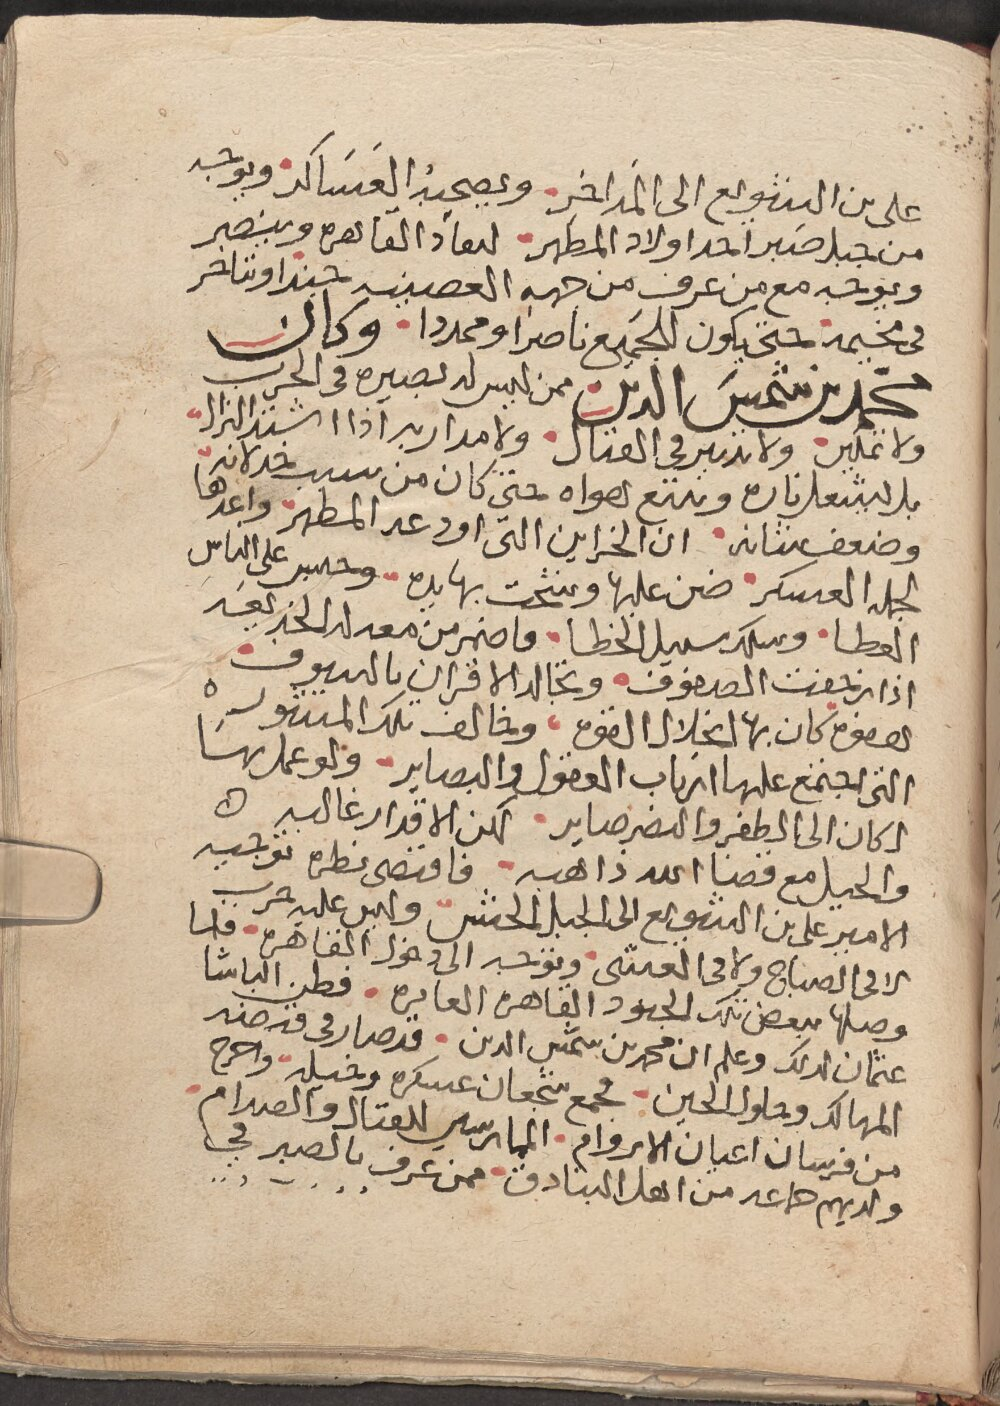 على بن الشويع الى المداخر. وبصحبته العساكر. ويوجه
من جبل صبر احد اولاد المطهر. لبعاد القاهره وينصر
ويوجه مع من عرف من جهه العصيبه جندا وتتاخر
فى مخيمه حتى يكون للجميع ناصرا وممددا. وكان
محمد بن شمس الدين ممن ليس له بصيره فى الحرب
ولا تمكين. ولا تدبير فى القتال. ولا مدار به اذا اشتد النزال.
بل يشعل ناره ويتبع هواه حتى كان من سبب خذلانه.
وضعف شانه. ان الخزاين التى اودعه المطهر. واعدها
لجمله العسكر. ضن عليها وشحت بها يده. وحبس على الناس
العطا. وسلك سبيل الخطا. فاضمر من معه له الخديعه
اذا زحفت الصفوف. وتجالد الاقران بالسيوف.
لهفوه كان بها انحلال القوه. وخالف تلك المشوره
التى اجتمع عليها ارباب العقول والبصاير. ولو عمل بها
لكان الى الظفر والنصر صاير. لكن الاقدار غالبه ه
والحيل مع قضا الله ذاهبه. فاقتضى نظره توجيه
الامير على بن الشويع الى الجبل الحنش. وليس عليه حرب
لا فى الصباح ولا فى العشى. وتوجه الى دخول القاهره. فلما
وصلها ببعض تلك الجنود القاهره العابره. فطن الباشا
عثمان لذلك وعلم ان محمد بن شمس الدين. قد صار فى قبضه
المهالك وحاول الحين. فجمع شجعان عسكره وخيله. واخرج
من فرسان اعيان الاروام. المايرسين للقتال والصدام.
ولديهم جماعه من اهل البنادق. ممن عرف بالصبر فى